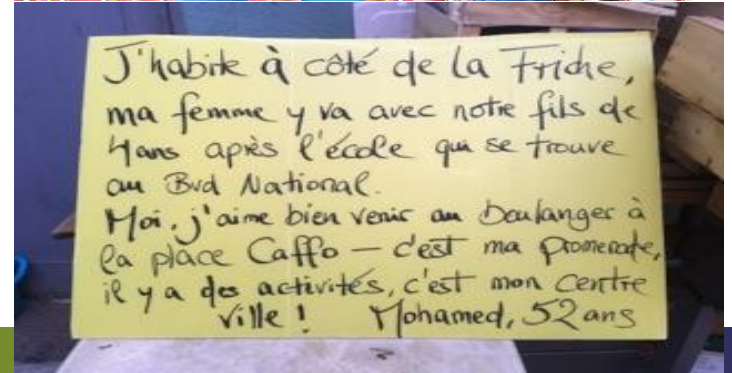 J'habite à côté de la Friche,
ma femme y va avec notre fils de
4 ans après l'école qui se trouve
au Bvd National.
Moi, j'aime bien venir au boulanger à
la place Caffo — c'est ma promenade,
il y a des activités, c'est mon centre
ville ! Mohamed, 52 ans